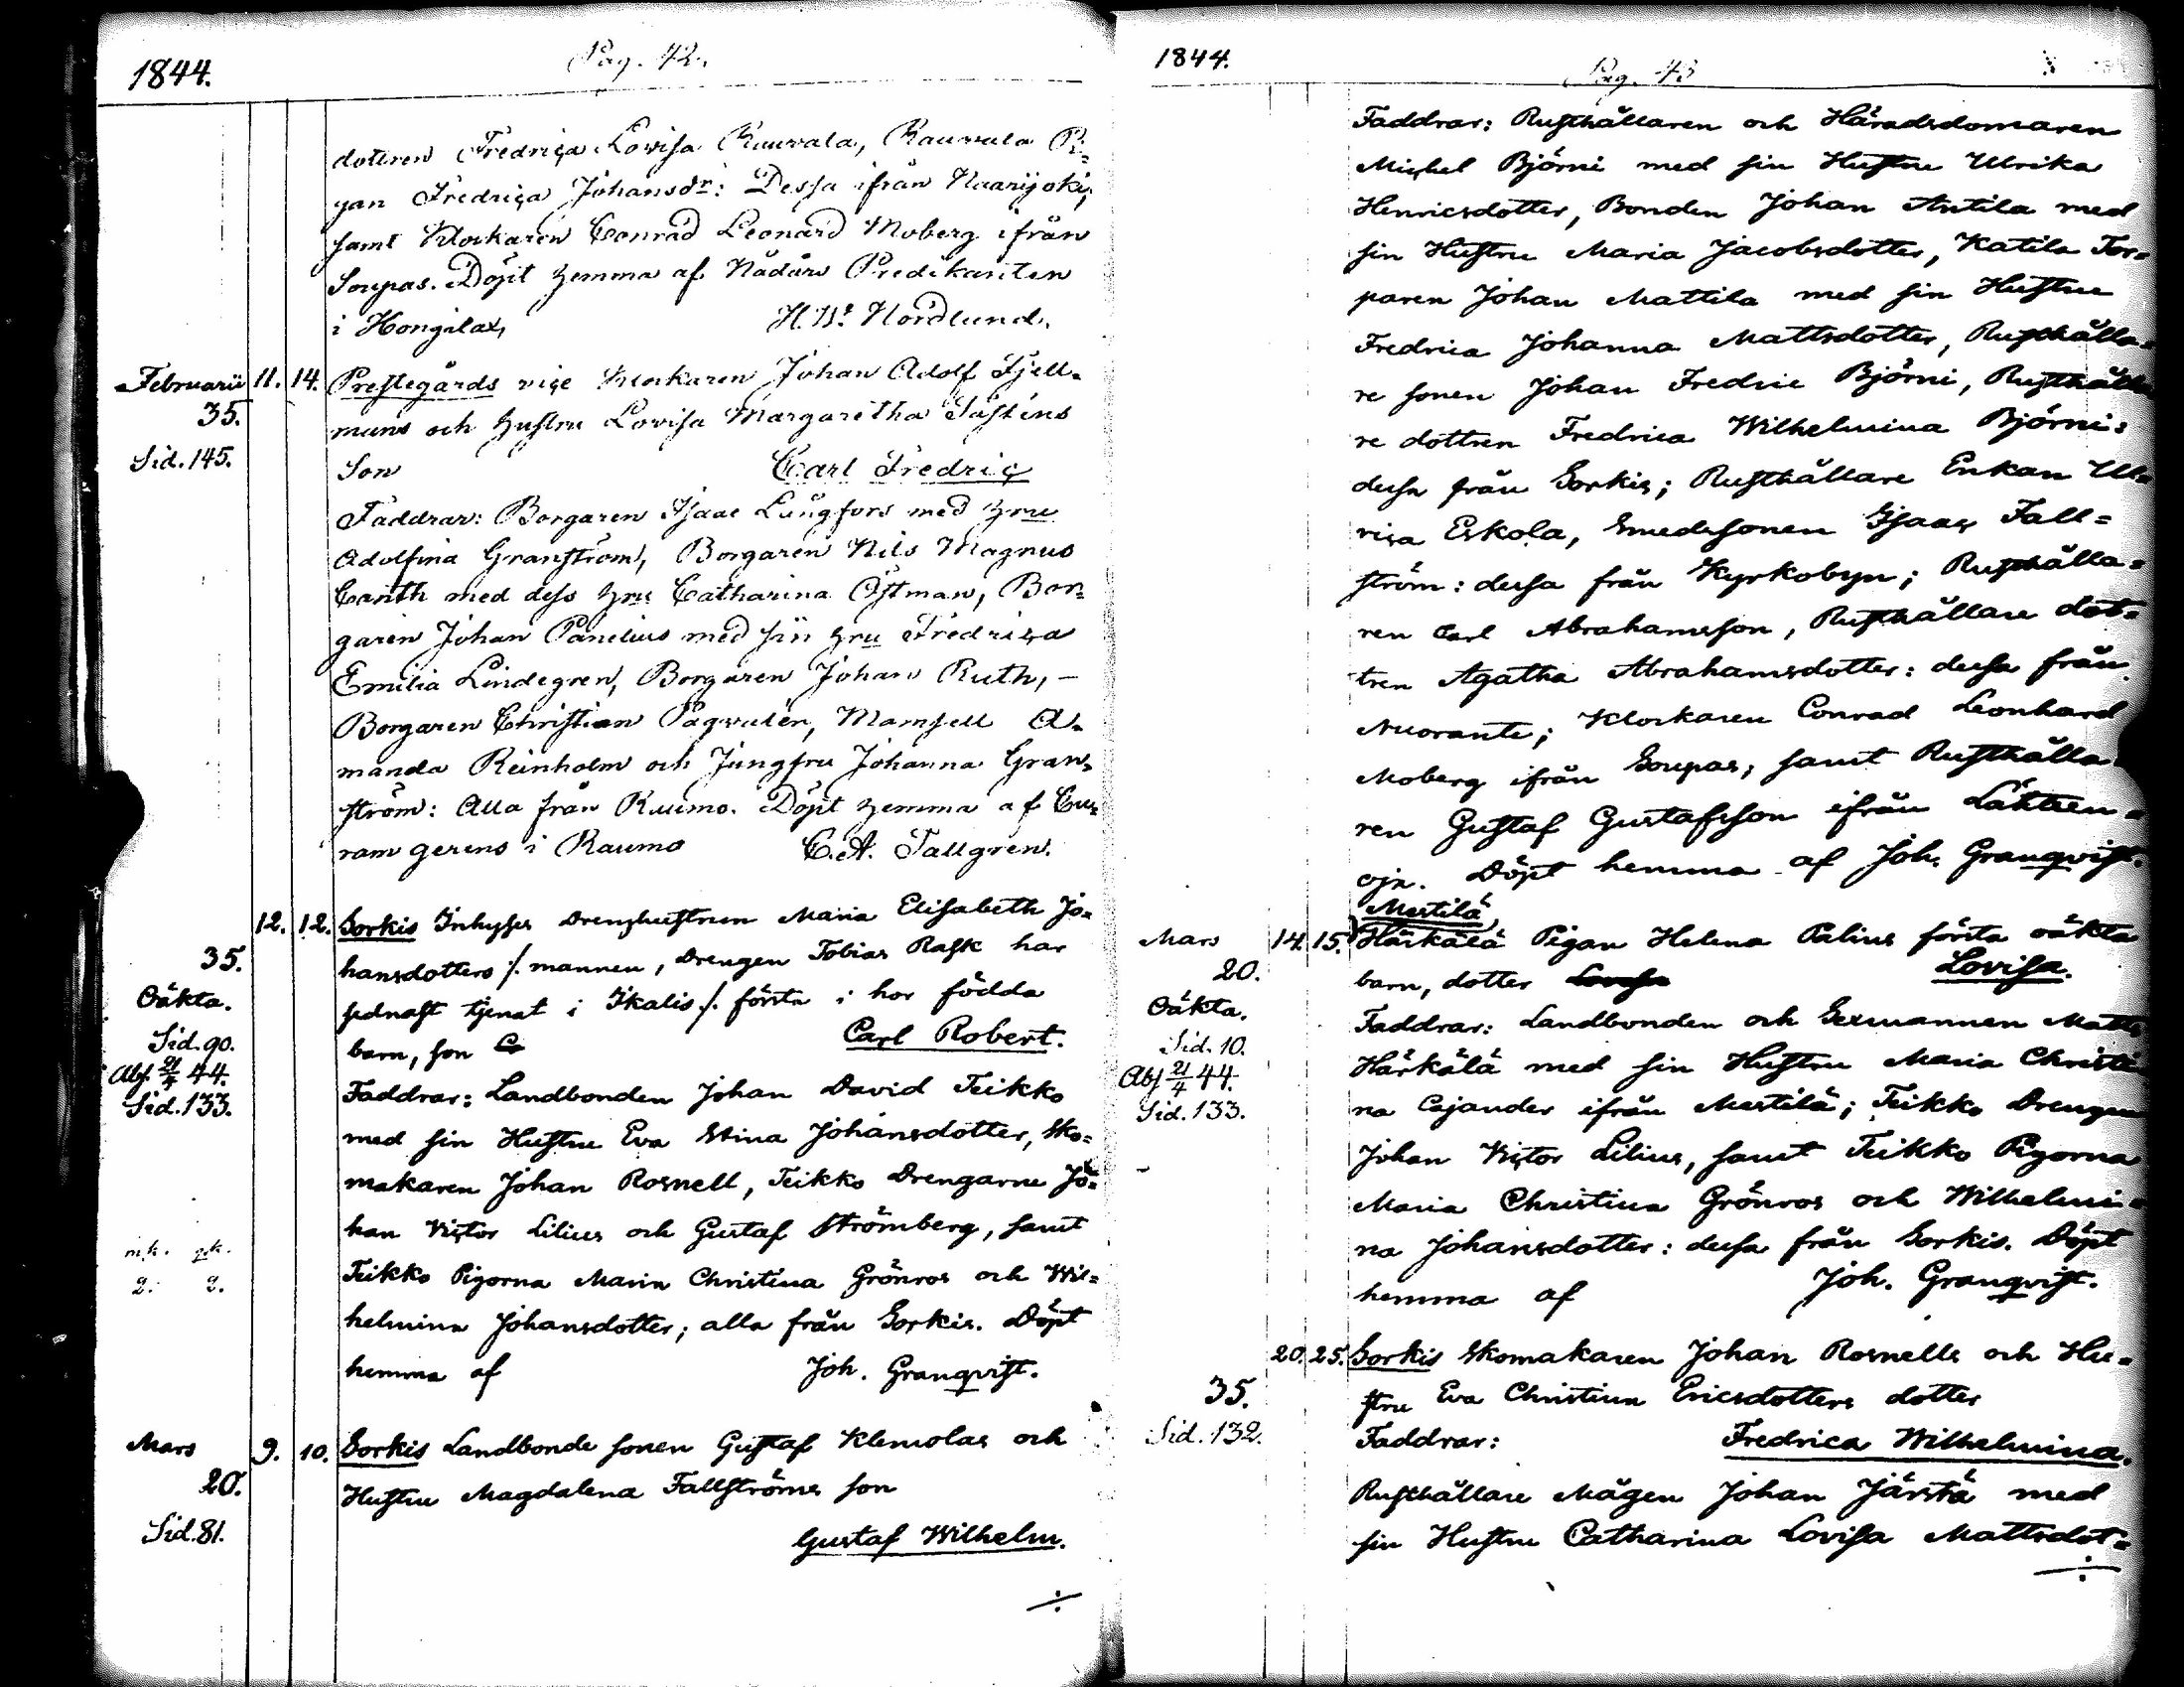 1844.
Pag. 42.
dottren Fredrica Lovisa Rauvala, Rauvala Pi=
gan Fredrica Johansdr: Dessa ifrån Naarijoki,
samt Klockaren Conrad Leonard Moberg ifrån
Sorpas. Döpt hemma af Nådårs Predikanten
i Hongilax, H. W. Nordlund.
Februarii 11. 14. Prestegårds vice Klockaren Johan Adolf Fjell=
35. mans och hustru Lovisa Margaretha
Sid. 145. Son Carl Fredric
Faddrar: Borgaren Isaac Långfors med hru
Adolfina Granström, Borgaren Nils Magnus
Carith med dess hru Catharina Östman, Bor=
garen Johan Panelius med sin hru Fredrica
Emilia Lindegren, Borgaren Johan Ruth, –
Borgaren Christian Pagvalen, Mamsell A=
manda Reinholm och Jungfru Johanna Gran=
ström: Alla från Raumo. Döpt hemma af Cu=
ram gerens i Raumo C. A. Tallgren.
12. 12. Sorkis Inhyses Drenghustrun Maria Elisabeth Jo=
35. hansdotters /. mannen, Drengen Tobias Rask har
Oäkta. sednast tjenat i Ikalis /. första i hor födda
Sid. 90. barn, son Carl Robert.
Abs. 21/4 44.
Sid. 133. Faddrar: Landbonden Johan David Teikko
med sin Hustru Eva Stina Johansdotter, Sko=
makaren Johan Rosnell, Teikko Drengarne Jo=
han Victor Lilius och Gustaf Strömberg, samt
mk. Teikko Pigorna Maria Christina Grönros och Wil=
2. 2. helmina Johansdotter; alla från Sorkis. Döpt
hemma af Joh. Granqvist.
Mars 9. 10. Sorkis Landbonde sonen Gustaf Klemolas och
20. Hustru Magdalena Fallströms son
Sid. 81. Gustaf Wilhelm.
÷
1844.
Pag. 43
Faddrar: Rusthållaren och Häradsdomaren
Michel Björni med sin Hustru Ulrika
Henricsdotter, Bonden Johan Antila med
sin Hustru Maria Jacobsdotter, Katila Tor=
paren Johan Mattila med sin Hustru
Fredrica Johanna Mattsdotter, Rusthålla=
re sonen Johan Fredric Björni, Rusthålla
re dottren Fredrica Wilhelmina Björni:
dessa från Sorkis; Rusthållare Enkan Ul=
rica Eskola, Smedssonen Isaac Fall=
ström: dessa från Kyrkobyn; Rusthålla=
ren Carl Abrahamsson, Rusthållare dot=
tren Agatha Abrahamsdotter: dessa från
Nuoranti; Klockaren Conrad Leonhard
Moberg ifrån Sorpas; samt Rusthålla
ren Gustaf Gustafsson ifrån Lähteen=
oja. Döpt hemma af Joh. Granqvist.
Mestilä,
Mars 14. 15. Härkälä Pigan Helena Palius första oäkta
20. barn, dotter Lovisa.
Oäkta. Faddrar: Landbonden och Sexmannen Matts
Sid. 10. Härkälä med sin Hustru Maria Christi
Abs 21/4 44. na Cajander ifrån Mestilä; Teikko Drengen
Sid. 133. Johan Victor Lilius, samt Teikko Pigorna
Maria Christina Grönros och Wilhelmi=
na Johansdotter: dessa från Sorkis. Döpt
hemma af Joh. Granqvist.
20. 25. Sorkis Skomakaren Johan Rosnells och Hu=
35. stru Eva Christina Ericsdotters dotter
Sid. 132. Faddrar: Fredrica Wilhelmina.
Rusthållare Mågen Johan Järstä med
sin Hustru Catharina Lovisa Mattsdot=
÷